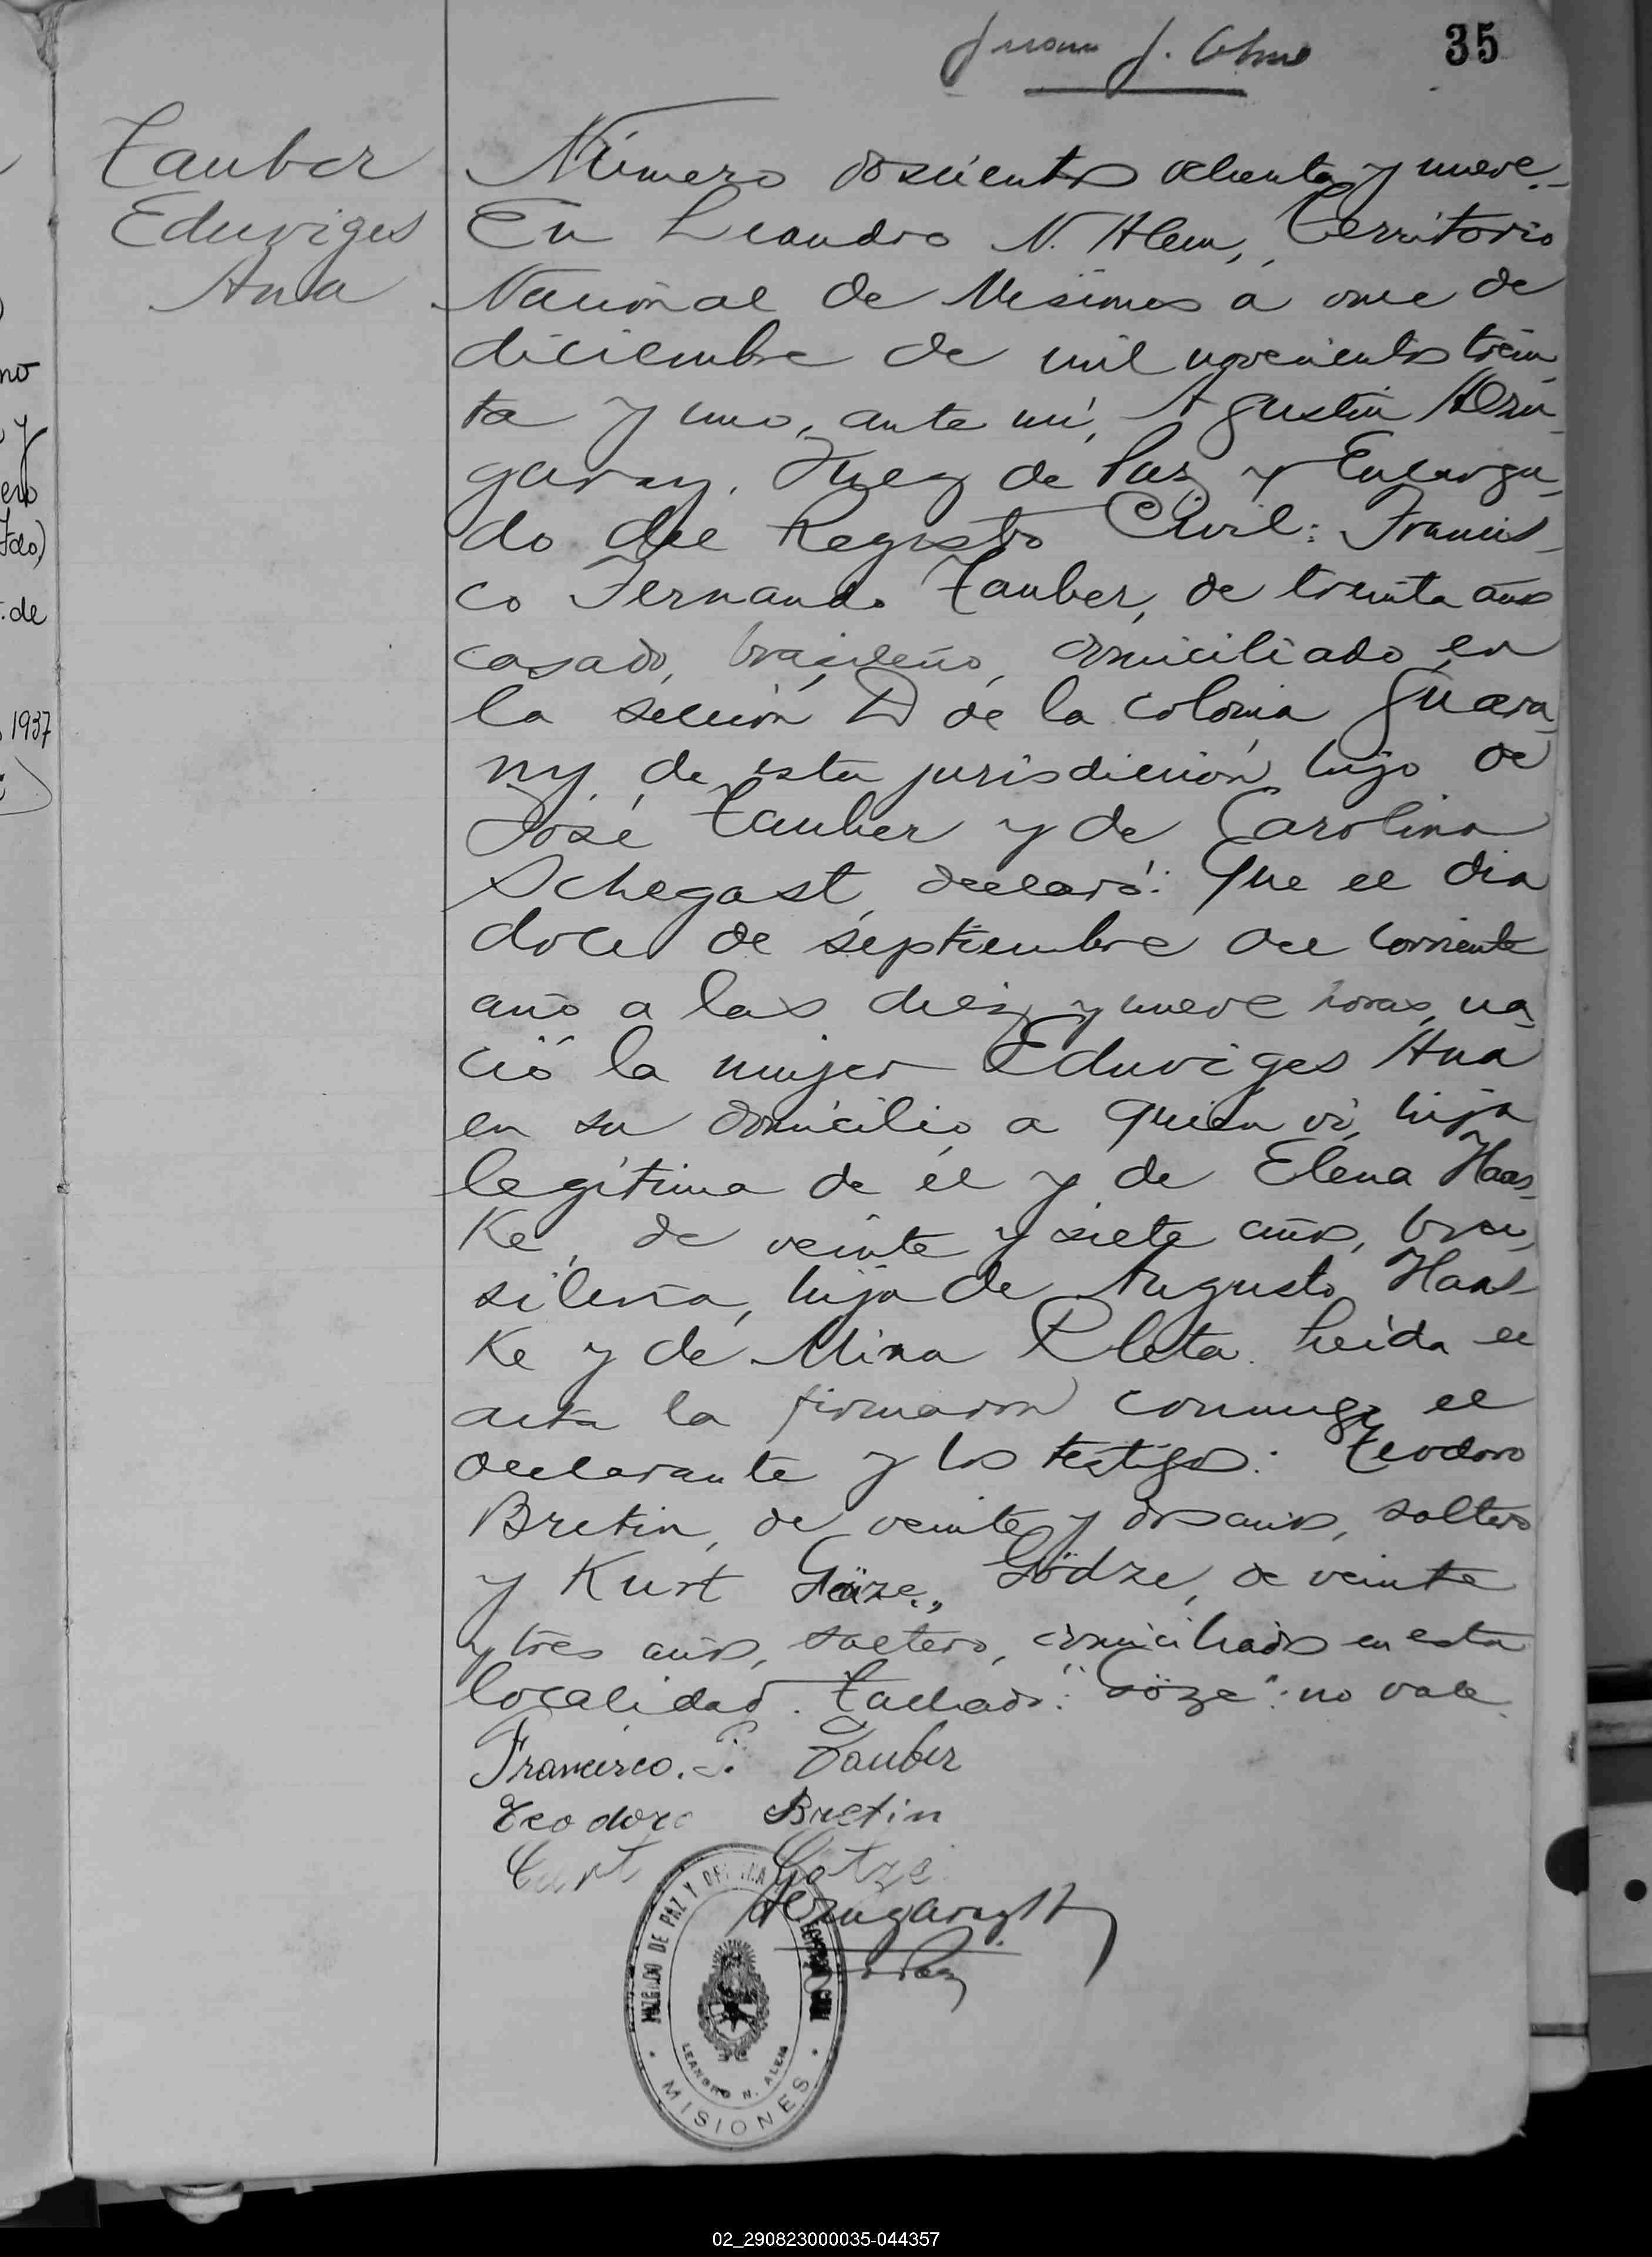 35
Tauber
Eduviges
Ana
Número doscientos ochenta y nueve.-
En Leandro N. Alem, Territorio
Nacional de Misiones a once de
diciembre de mil novecientos trein-
ta y uno, ante mí, Agustín Aizu-
garay, Juez de Paz y Encarga-
do del Registro Civil: Francis-
co Fernando Tauber, de treinta años
casado, brasileño, domiciliado en
la sección D de la colonia Guara-
ny, de esta jurisdicción, hijo de
José Tauber y de Carolina
Schegast, declaró: Que el dia
doce de septiembre del corriente
año a las diez y nueve horas, na-
ció la mujer Eduviges Ana
en su domicilio a quien vi, hija
legítima de él y de Elena Haas-
ke, de veinte y siete años, bra-
sileña, hija de Augusto Haas-
ke y de Mina Pleta. Leida el
acta la firmaron conmigo el
declarante y los testigos: Teodoro
Bretin, de veinte y dos años, soltero
y Kurt Göze,, Gödze, de veinte
y tres años, soltero, domiciliados en esta
localidad. Tachado: "Göze": no vale.
Francisco. F. Tauber
Teodoro Bretin
Curt Götze
JUZGADO DE PAZ Y OFICINA
LEANDRO N. ALEM
MISIONES
no
y
de
1937
02_290823000035-044357